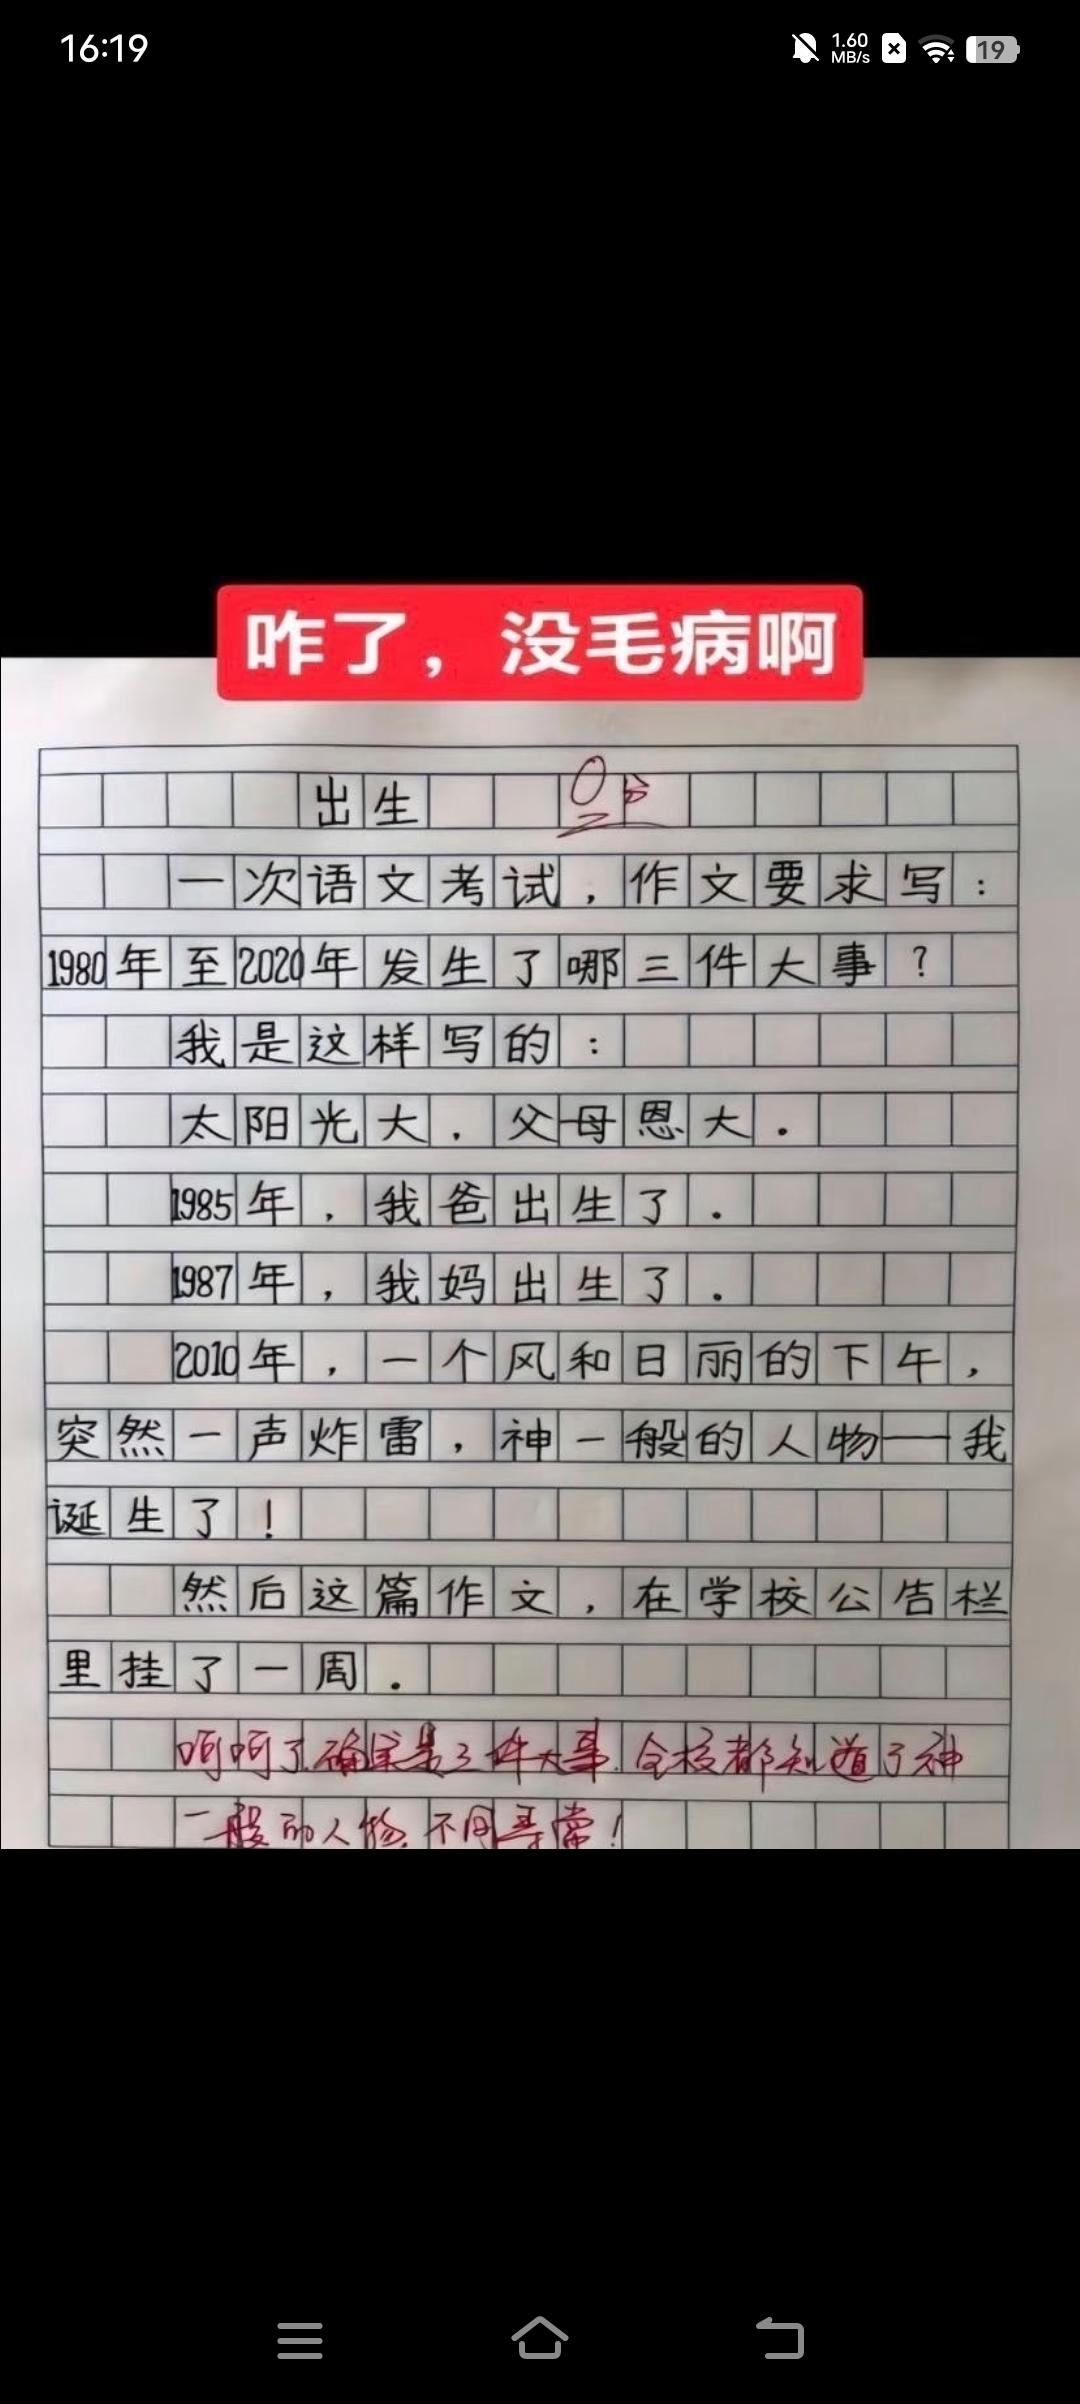 16:19
1.60
MB/s
19
咋了，没毛病啊
出生 0分
一次语文考试，作文要求写：
1980年至2020年发生了哪三件大事？
我是这样写的：
太阳光大．父母恩大．
1985年，我爸出生了．
1987年，我妈出生了．
2010年，一个风和日丽的下午，
突然一声炸雷，神一般的人物——我
诞生了！
然后这篇作文，在学校公告栏
里挂了一周．
呵呵了.确实是三件大事.全校都知道了神
一般的人物.不同寻常！